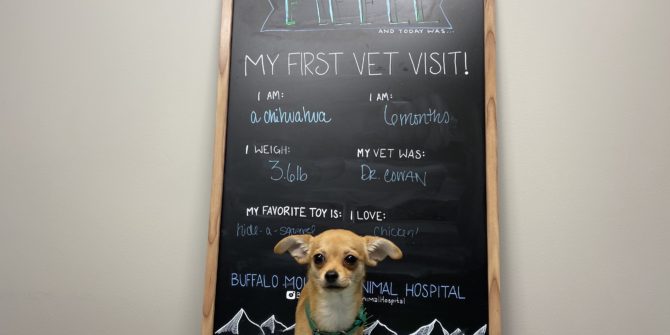 AND TODAY WAS...
MY FIRST VET VISIT!
I AM: I AM:
a chihuahua 6 months
I WEIGH: MY VET WAS:
3.6lb DR. COWAN
MY FAVORITE TOY IS: I LOVE:
hide-a-squirrel chicken!
BUFFALO NIMAL HOSPITAL